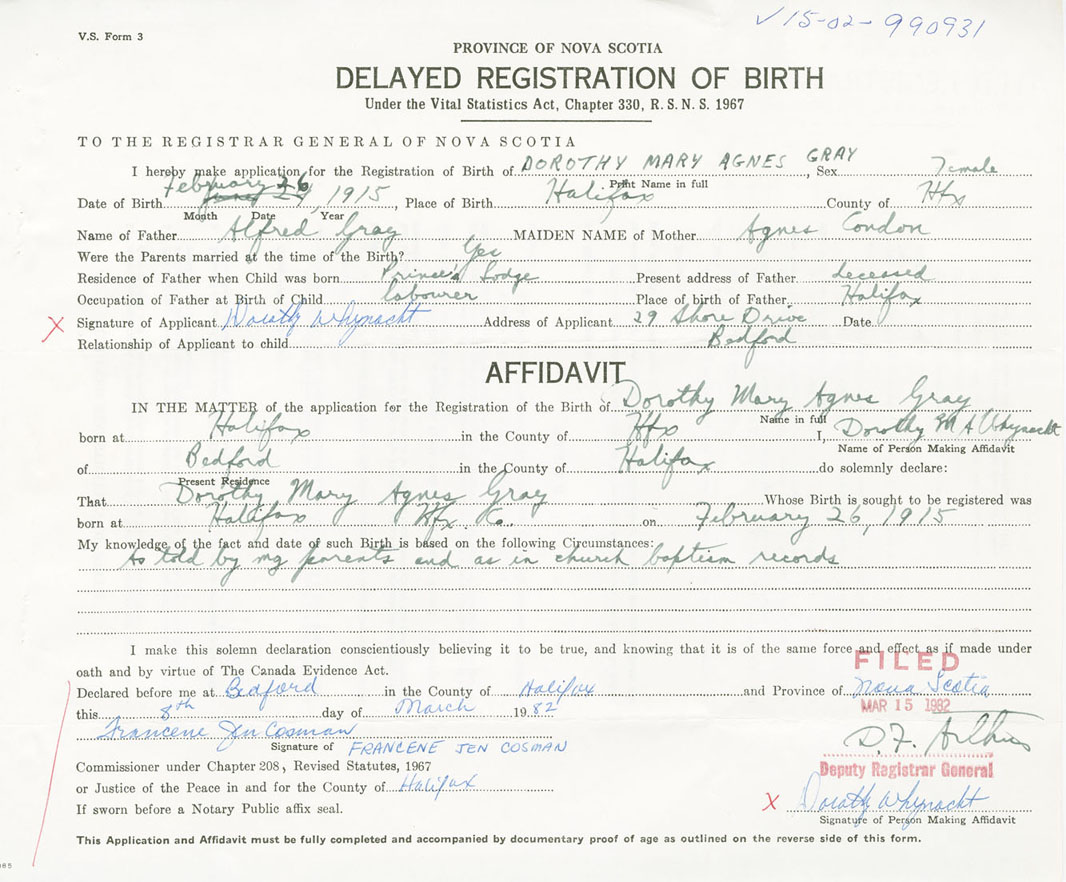 ✓ 15-02-990931
V.S. Form 3
PROVINCE OF NOVA SCOTIA
DELAYED REGISTRATION OF BIRTH
Under the Vital Statistics Act, Chapter 330, R.S.N.S. 1967
TO THE REGISTRAR GENERAL OF NOVA SCOTIA
I hereby make application for the Registration of Birth of DOROTHY MARY AGNES GRAY, Sex Female
Print Name in full
Date of Birth February 26, 1915, Place of Birth Halifax County of Hfx
Month Date Year
Name of Father Alfred Gray MAIDEN NAME of Mother Agnes Condon
Were the Parents married at the time of the Birth? Yes
Residence of Father when Child was born Prince's Lodge Present address of Father deceased
Occupation of Father at Birth of Child labourer Place of birth of Father Halifax
X Signature of Applicant Dorothy Whynacht Address of Applicant 29 Shore Drive Date
Relationship of Applicant to child Bedford
AFFIDAVIT
IN THE MATTER of the application for the Registration of the Birth of Dorothy Mary Agnes Gray
Name in full
born at Halifax in the County of Hfx I, Dorothy M A Whynacht
Name of Person Making Affidavit
of Bedford in the County of Halifax do solemnly declare:
Present Residence
That Dorothy Mary Agnes Gray Whose Birth is sought to be registered was
born at Halifax Hfx. Co. on February 26, 1915
My knowledge of the fact and date of such Birth is based on the following Circumstances:
As told by my parents and as in church baptism records
I make this solemn declaration conscientiously believing it to be true, and knowing that it is of the same force and effect as if made under
oath and by virtue of The Canada Evidence Act.
FILED
Declared before me at Bedford in the County of Halifax and Province of Nova Scotia
MAR 15 1982
this 8th day of March 1982
Francene Jen Cosman
D.F.
Signature of FRANCENE JEN COSMAN
Commissioner under Chapter 208, Revised Statutes, 1967
Deputy Registrar General
or Justice of the Peace in and for the County of Halifax
X Dorothy Whynacht
If sworn before a Notary Public affix seal.
Signature of Person Making Affidavit
This Application and Affidavit must be fully completed and accompanied by documentary proof of age as outlined on the reverse side of this form.